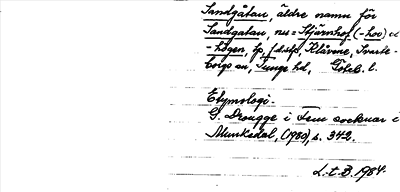 Sandgåtan, äldre namn för
Sandgatan, nu = Stjärnhof (-hov) o
-högen, Klåvene, Svarte-
borgs sn, Tunge hd, Göteb. l.
Etymologi.
G. Drougge i Fem socknar i
Munkedal, (1980), s. 342.
L.t.B. 1984.